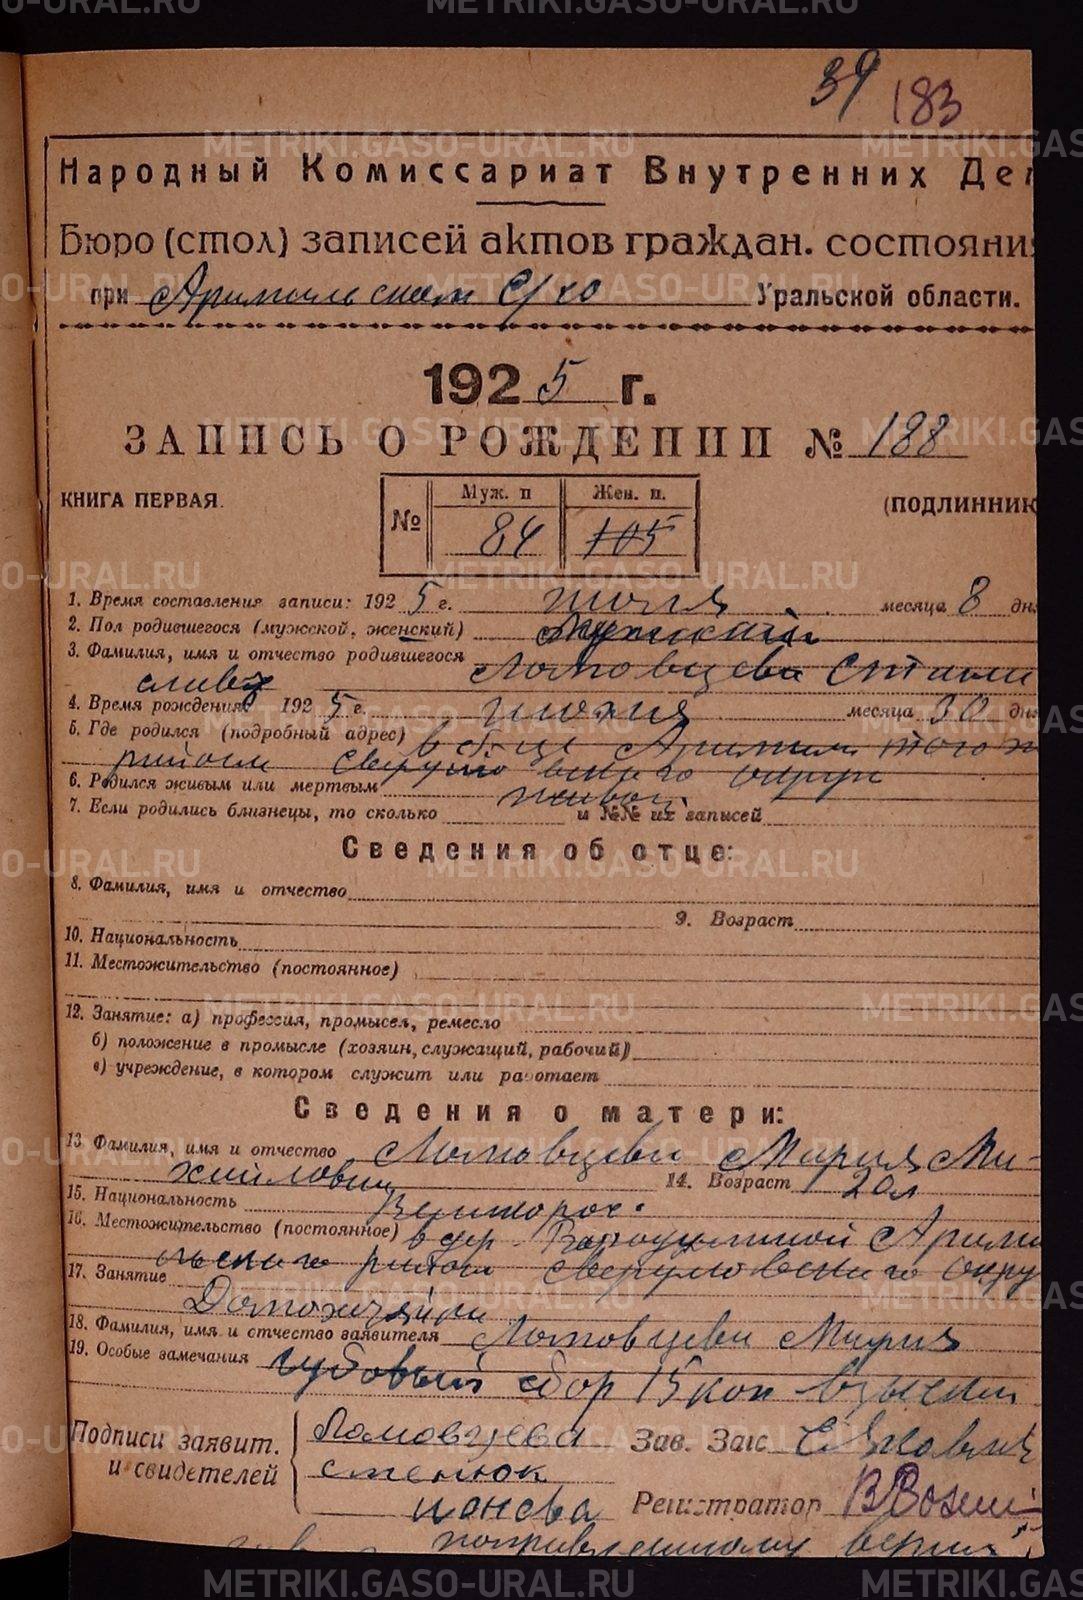 39 183
Народный Комиссариат Внутренних Дел
Бюро (стол) записей актов граждан. состояния
при Арамильском с/хо Уральской области.
1925 г.
ЗАПИСЬ О РОЖДЕНИИ № 188
КНИГА ПЕРВАЯ. (ПОДЛИННИК
№ Муж. п Жен. п.
84 105
1. Время составления записи: 1925 г. июля месяца 8 дня
2. Пол родившегося (мужской, женский) Мужской
3. Фамилия, имя и отчество родившегося Ломовцева Стани
слав
4. Время рождения 1925 г. июня месяца 30 дня
5. Где родился (подробный адрес) в б-це Арамил того ж
района Свердловского округа
6. Родился живым или мертвым живой
7. Если родились близнецы, то сколько и №№ их записей
Сведения об отце:
8. Фамилия, имя и отчество
9. Возраст
10. Национальность
11. Местожительство (постоянное)
12. Занятие: а) профессия, промысел, ремесло
б) положение в промысле (хозяин, служащий, рабочий)
в) учреждение, в котором служит или работает
Сведения о матери:
13. Фамилия, имя и отчество Ломовцева Мария Ми-
хайловна 14. Возраст 20л
15. Национальность Великорос.
16. Местожительство (постоянное) в дер. Арами
льского района Свердловского окру
17. Занятие
Домохозяйка
18. Фамилия, имя и отчество заявителя Ломовцева Мария
19. Особые замечания сбор 15 коп взыскан
Подписи заявит. Ломовцева Зав. Загс
и свидетелей
Регистратор